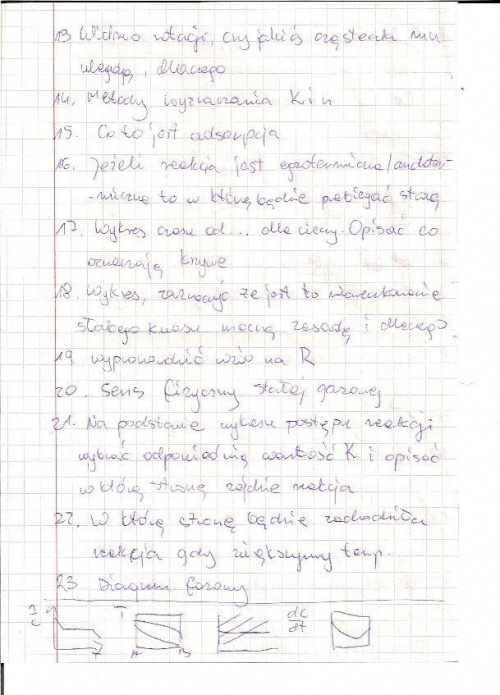 13 Widmo rotacji, czy jakieś cząsteczki mu
ulegają, dlaczego
14. Metody wyznaczania K i n
15. Co to jest adsorpcja
16. Jeżeli reakcja jest egzotermiczna/endoter-
-miczna to w którą będzie przebiegać stronę
17. Wykres czasu od... dla cieczy. Opisać co
oznaczają krzywe
18. Wykres, zaznaczyć że jest to miareczkowanie
słabego kwasu mocną zasadą i dlaczego
19. wyprowadzić wzór na R
20. Sens fizyczny stałej gazowej
21. Na podstawie wykresu postępu reakcji
wybrać odpowiednią wartość K i opisać
w którą stronę zajdzie reakcja
22. W którą stronę będzie zachodziła
reakcja gdy zwiększymy temp.
23 Diagram fazowy
T
A B
dc
dt